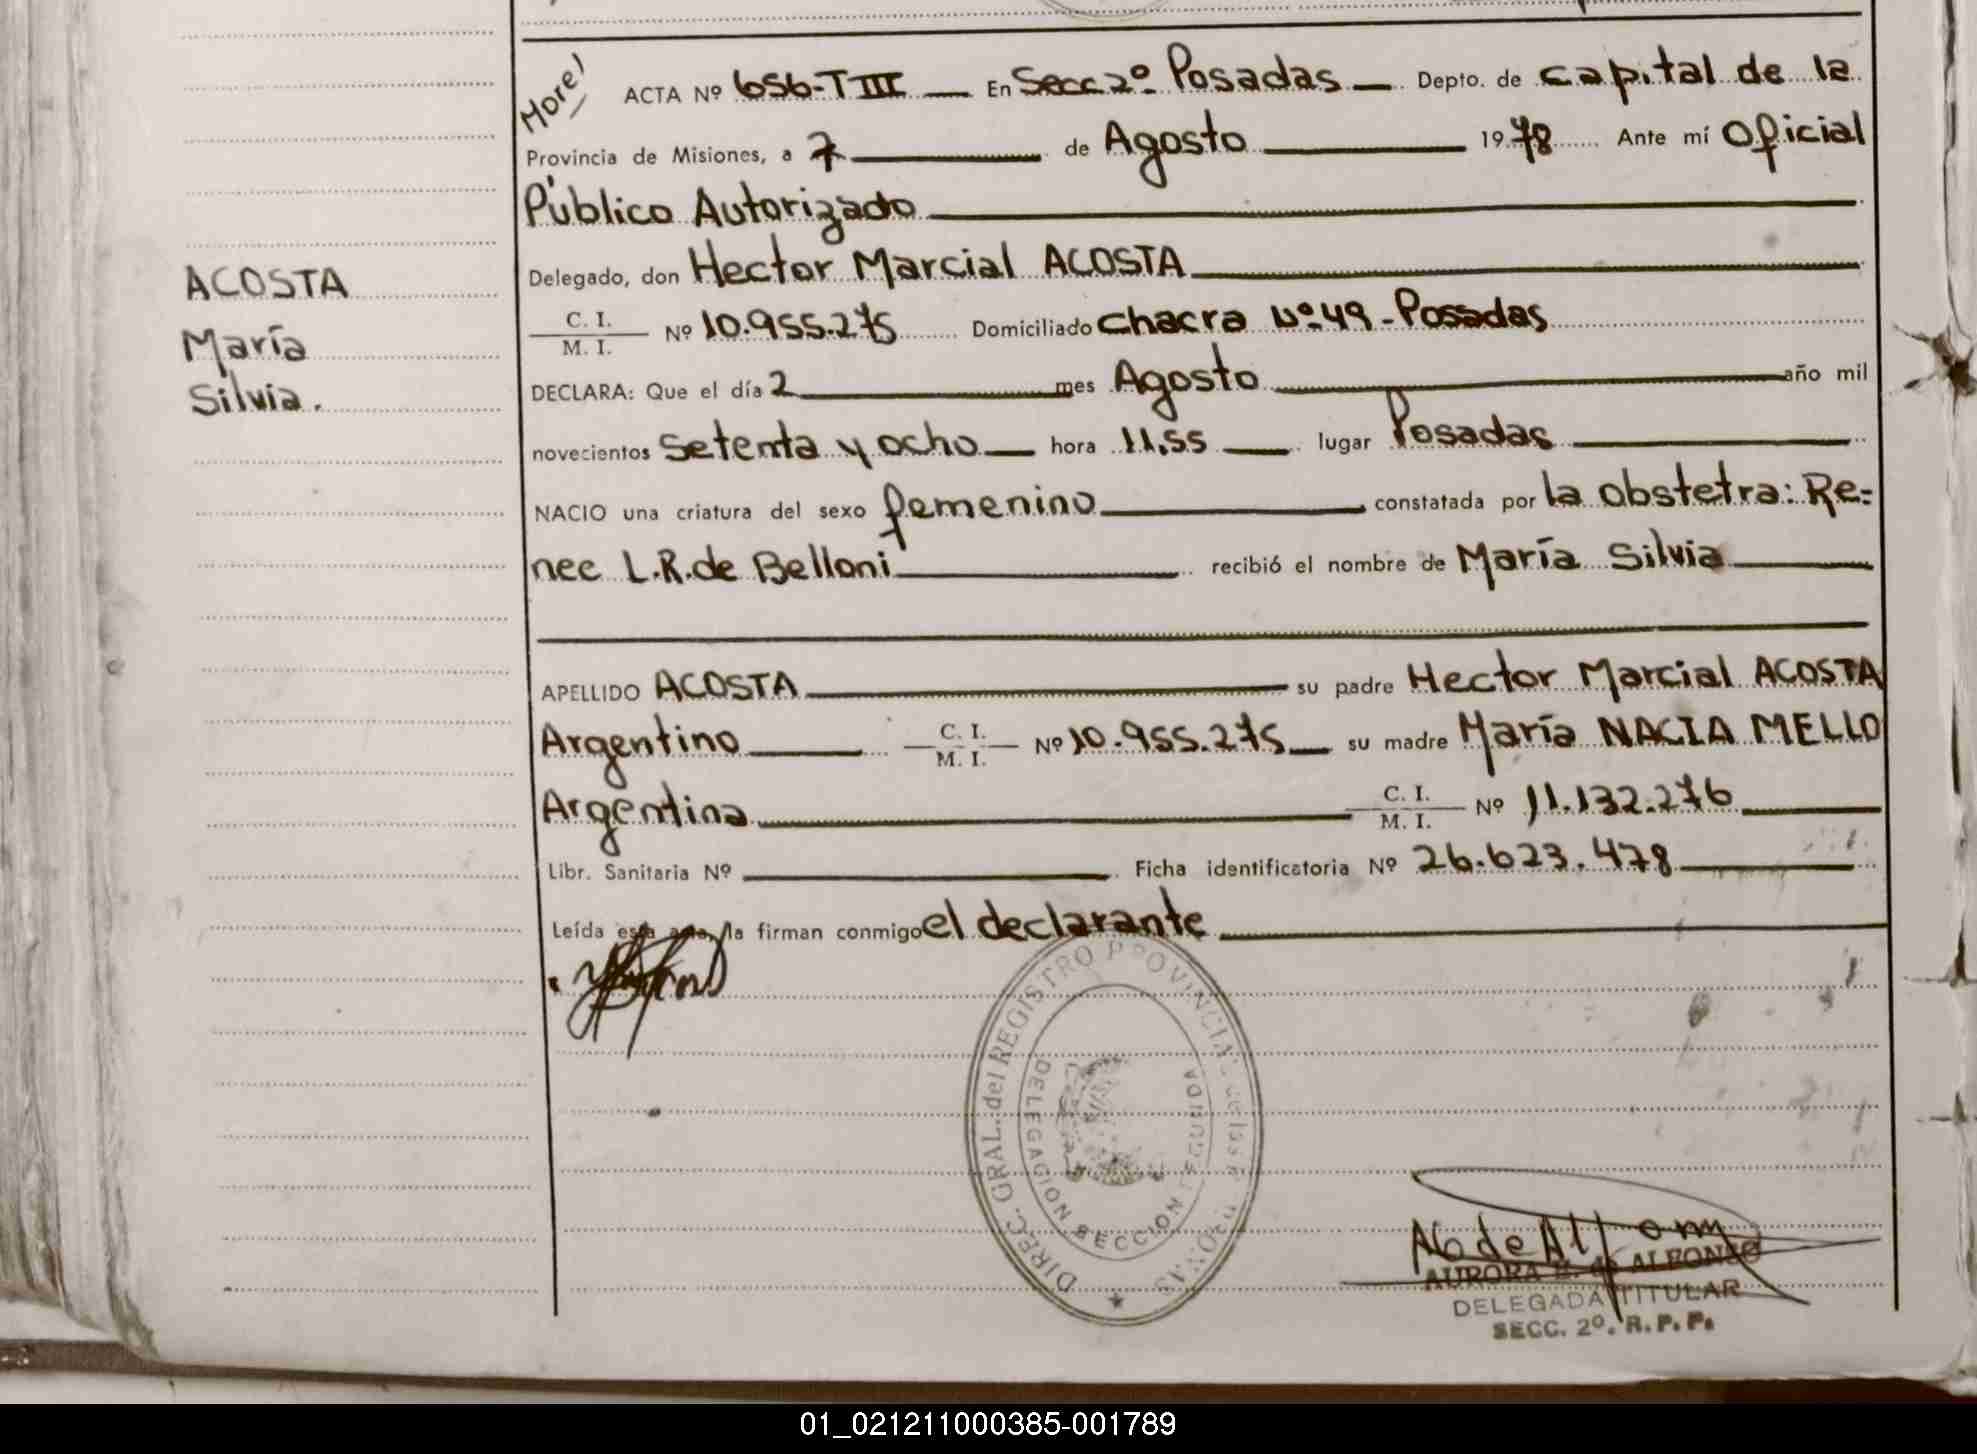 More!
ACTA Nº 656-TIII En Secc 2º Posadas Depto. de capital de la
Provincia de Misiones, a 7 de Agosto 1978 Ante mí Oficial
Público Autorizado
Delegado, don Hector Marcial ACOSTA
ACOSTA
C. I.
M. I. Nº 10.955.275 Domiciliado chacra Nº 49 - Posadas
María
DECLARA: Que el día 2 mes Agosto año mil
Silvia.
novecientos setenta y ocho hora 11,55 lugar Posadas
NACIO una criatura del sexo femenino constatada por la obstetra: Re=
nee L.R. de Belloni recibió el nombre de María Silvia
APELLIDO ACOSTA su padre Hector Marcial ACOSTA
Argentino C. I. M. I. Nº 10.955.275 su madre María NACIA MELLO
Argentina C. I. M. I. Nº 11.132.276
Libr. Sanitaria Nº Ficha identificatoria Nº 26.623.478
Leída esta acta, la firman conmigo el declarante
DIREC. GRAL. del REGISTRO PROVINCIAL de las PERSONAS
DELEGACION SECCION SEGUNDA
AURORA de ALFONSO
DELEGADA TITULAR
SECC. 2º. R. P. P.
01_021211000385-001789